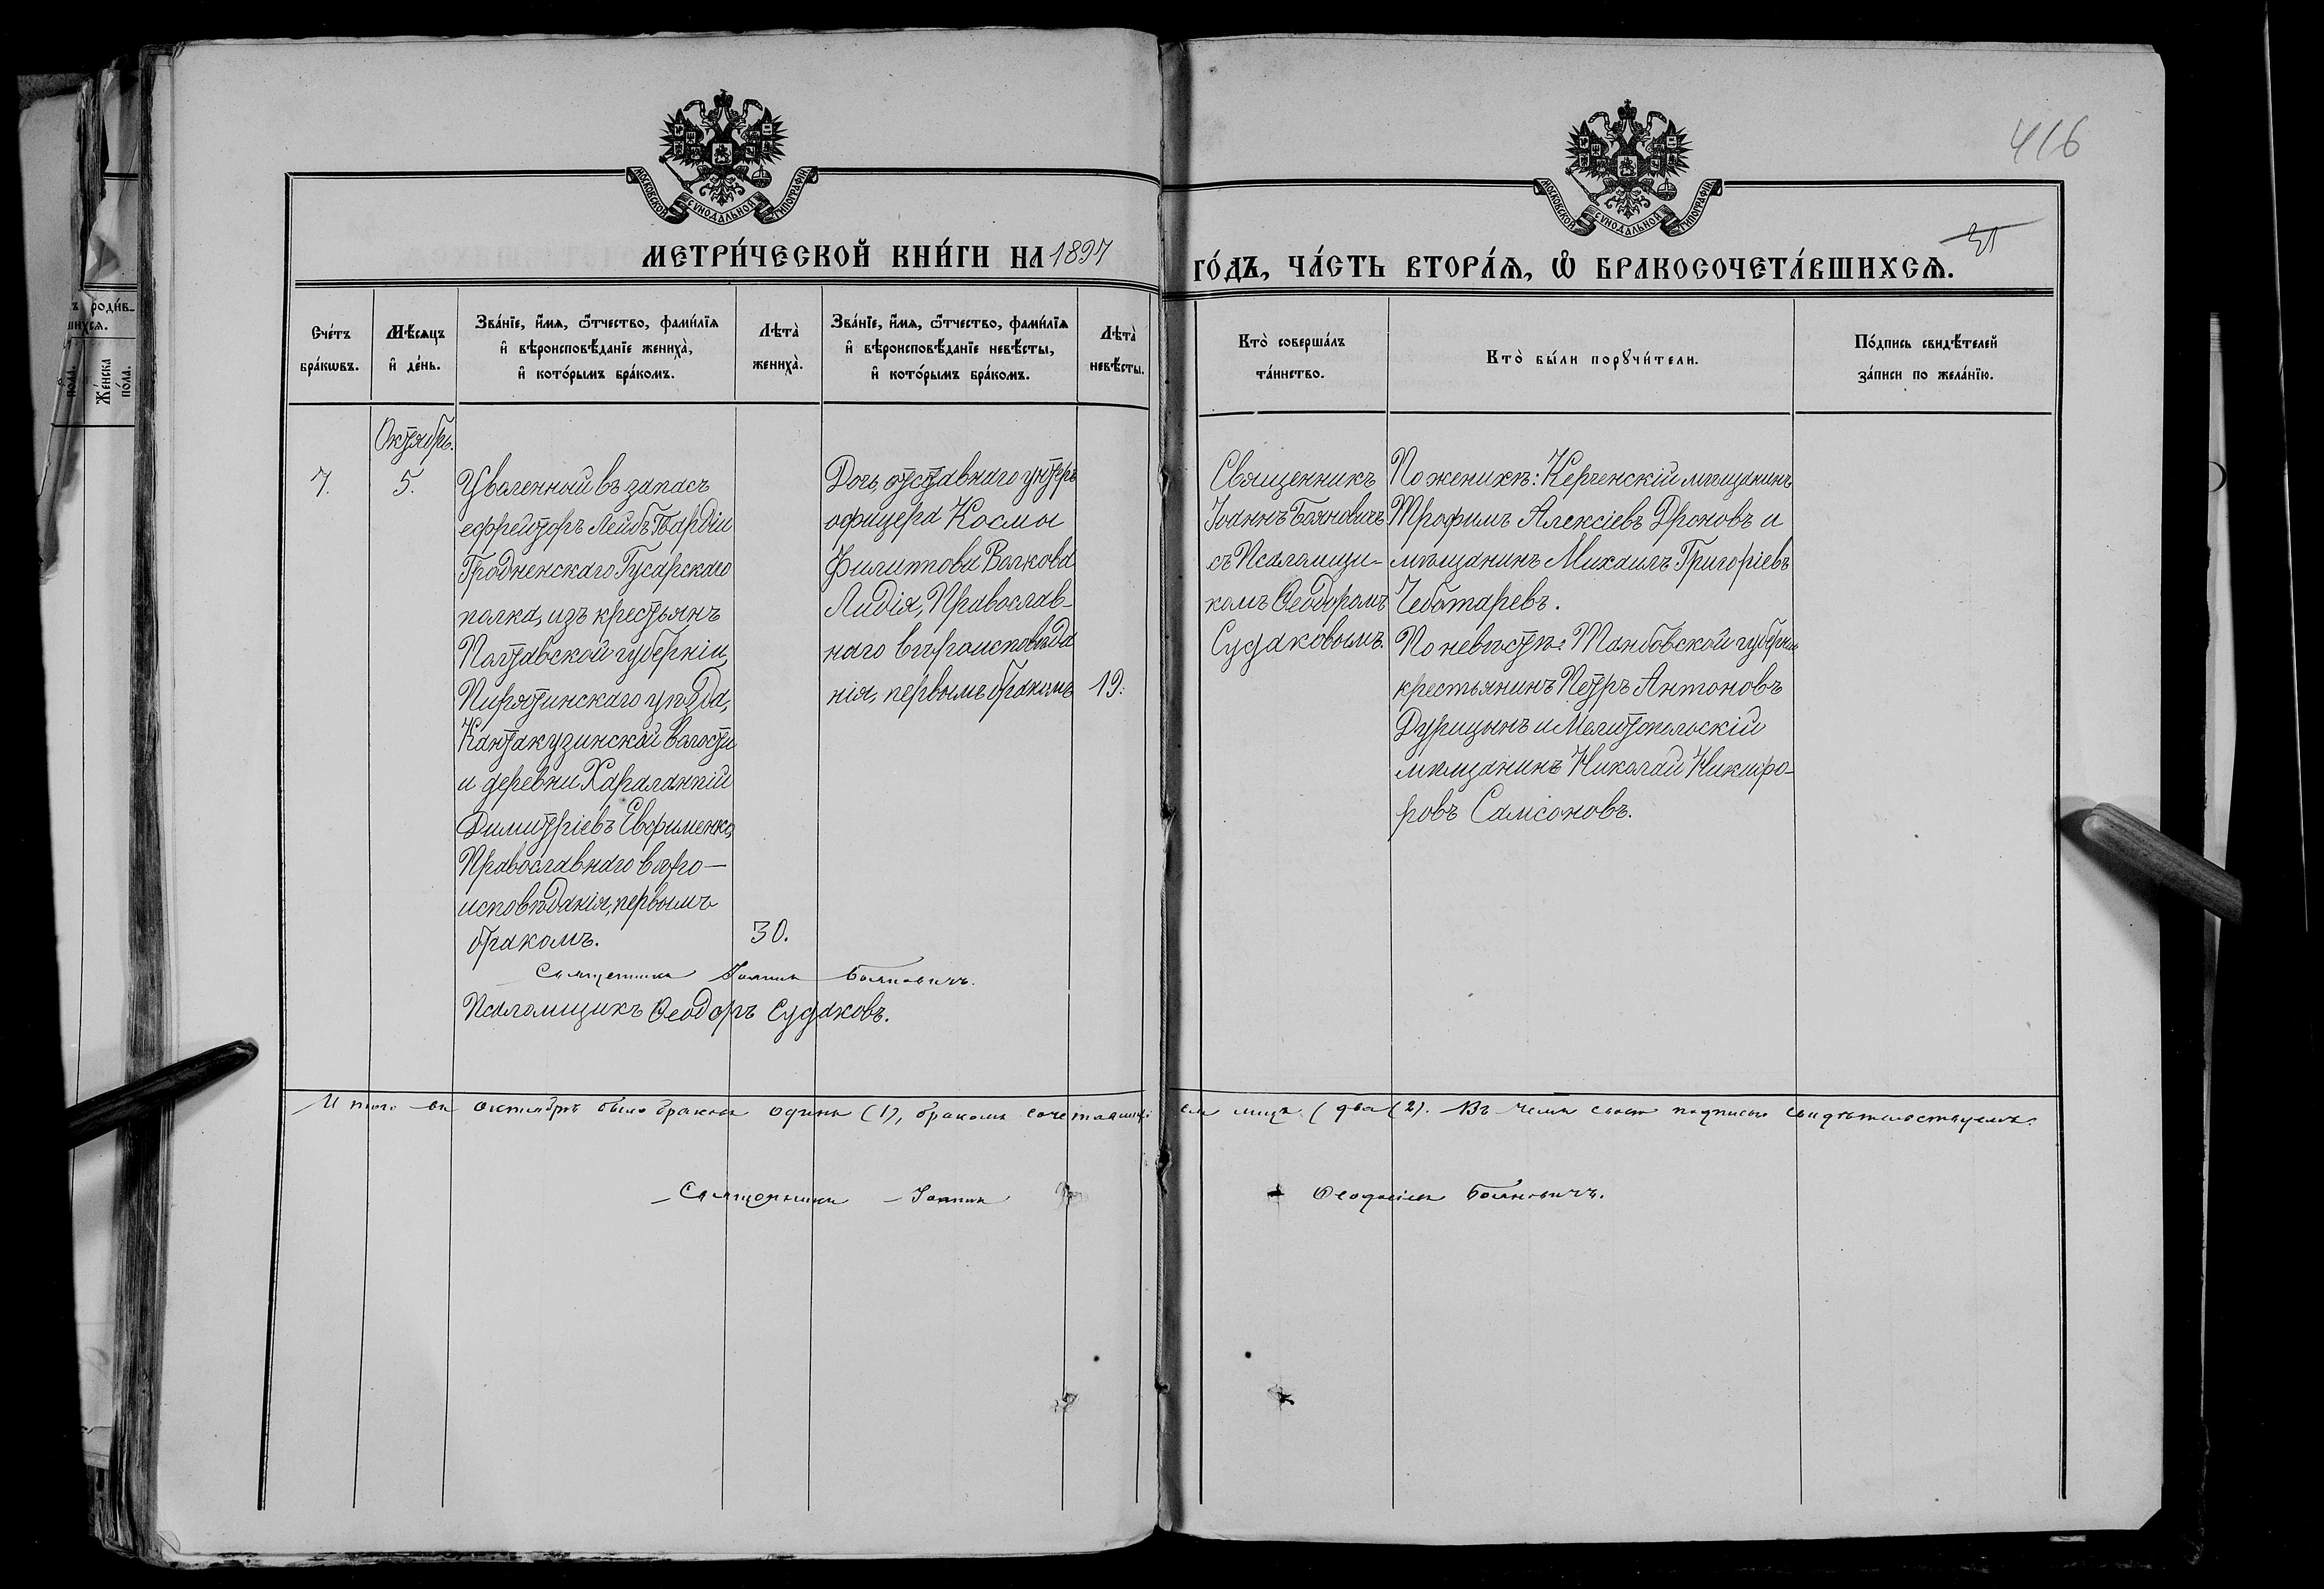 416
31
МОСКОВСКОЙ СѴНОДАЛЬНОЙ ТИПОГРАФІИ
МОСКОВСКОЙ СѴНОДАЛЬНОЙ ТИПОГРАФІИ
МЕТРИ́ЧЕСКОЙ КНИ́ГИ НА 1897
ГО́ДЪ, ЧА́СТЬ ВТОРА́Ѧ, Ѡ҆ БРАКОСОЧЕТА́ВШИХСѦ.
Сче́тъ
бра́кѡвъ.
Мѣ́сѧцъ
и҆ де́нь.
Зва́нїе, и҆́мѧ, ѻ҆́тчество, фами́лїѧ
и҆ вѣроисповѣ́данїе жениха̀,
и҆ кото́рымъ бра́комъ.
Лѣта̀
жениха̀.
Зва́нїе, и҆́мѧ, ѻ҆́тчество, фами́лїѧ
и҆ вѣроисповѣ́данїе невѣ́сты,
и҆ кото́рымъ бра́комъ.
Лѣта̀
невѣ́сты.
Кто̀ соверша́лъ
та́инство.
Кто̀ бы́ли порꙋчи́тели.
По́дпись свидѣ́телей
за́писи по жела́нїю.
ъ роди́в-
шихсѧ.
Же́нска
по́ла.
Октябрь.
7.
5.
Уволенный въ запасъ
ефрейторъ Лейбъ Гвардіи
Гродненскаго Гусарскаго
полка, изъ крестьянъ
Полтавской губерніи
Пирятинскаго уѣзда,
Кантакузинской волости
и деревни Харалампій
Димитріевъ Евфименко,
Православнаго вѣро-
исповѣданія, первымъ
бракомъ.
30.
Дочь отставнаго унтеръ
офицера Космы
Филиппова Волкова
Лидія, Православ-
наго вѣроисповѣда
нія, первымъ бракомъ
19.
Священникъ
Іоаннъ Бояновичъ
съ Псаломщи-
комъ Ѳеодоромъ
Судаковымъ.
По женихѣ: Керченскій мѣщанинъ
Трофимъ Алексіевъ Дроновъ и
мѣщанинъ Михаилъ Григоріевъ
Чеботаревъ.
По невѣстѣ: Тамбовской губерніи
крестьянинъ Петръ Антоновъ
Дурицынъ и Мелитопольскій
мѣщанинъ Николай Никифо-
ровъ Самсоновъ.
Священникъ Іоаннъ Бояновичъ.
Псаломщикъ Ѳеодоръ Судаковъ.
Итого въ октябрѣ было браковъ одинъ (1), бракомъ сочетавших ся лицъ (два (2). Въ чемъ своею подписью свидѣтельствуемъ.
Священникъ Іоаннъ Ѳеодосіевъ Бояновичъ.